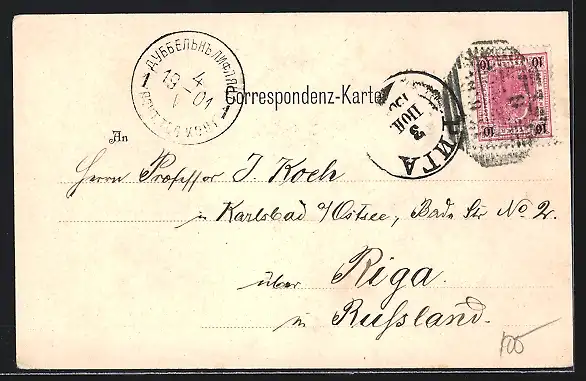 ДУББЕЛЬНЪ ЛИФЛЯН.
4
19 – 01
V
Correspondenz-Karte
3
РИГА
10 10
10 10
An
Herrn Professor J. Koch
in Karlsbad a/Ostsee, Bade Str No 2.
über Riga.
in Russland.
100